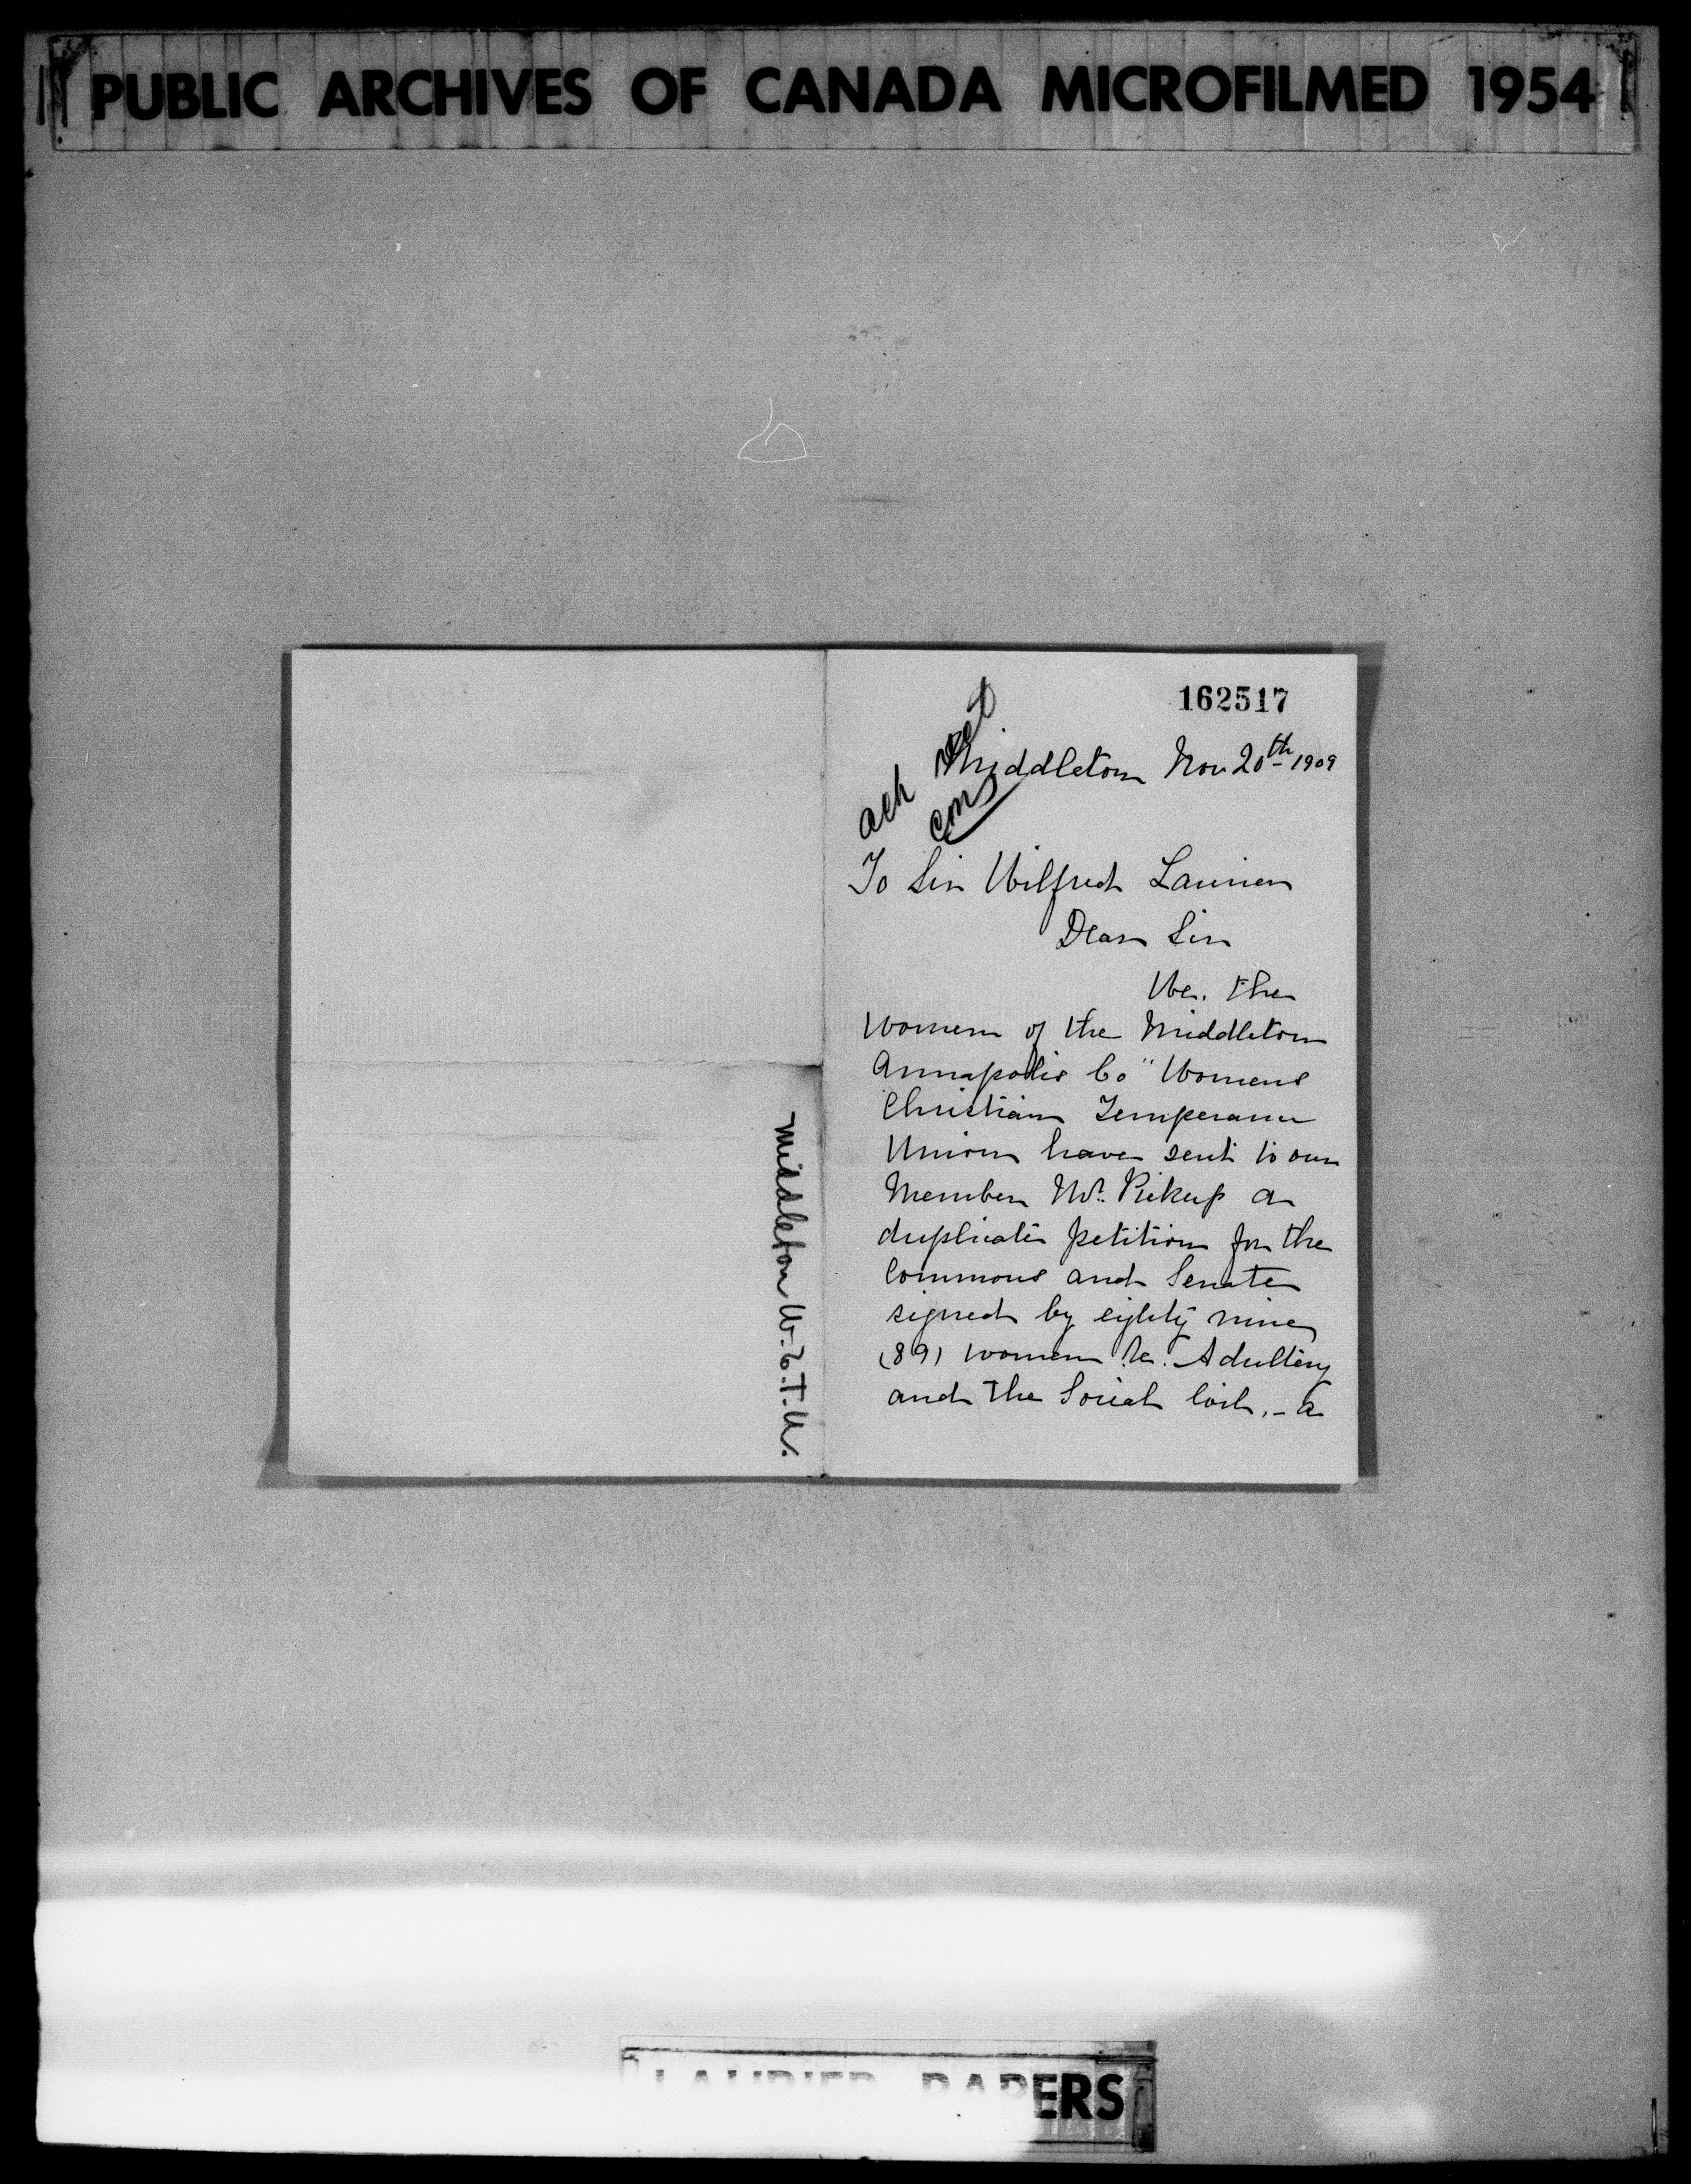 PUBLIC ARCHIVES OF CANADA MICROFILMED 1954
162517
Middleton Nov 20th 1909
ack
To Sir Wilfred Laurier
Dear Sir
We. the
Women of the Middleton
Annapolis Co " Womens
Christian Temperance
Union have sent to our
Member Mr. Pickup a
duplicate petition for the
Commons and Senate
signed by eighty nine
(89) women re. Adultery
and the Social Evil, - a
Middleton W.C.T.U.
LAURIER PAPERS